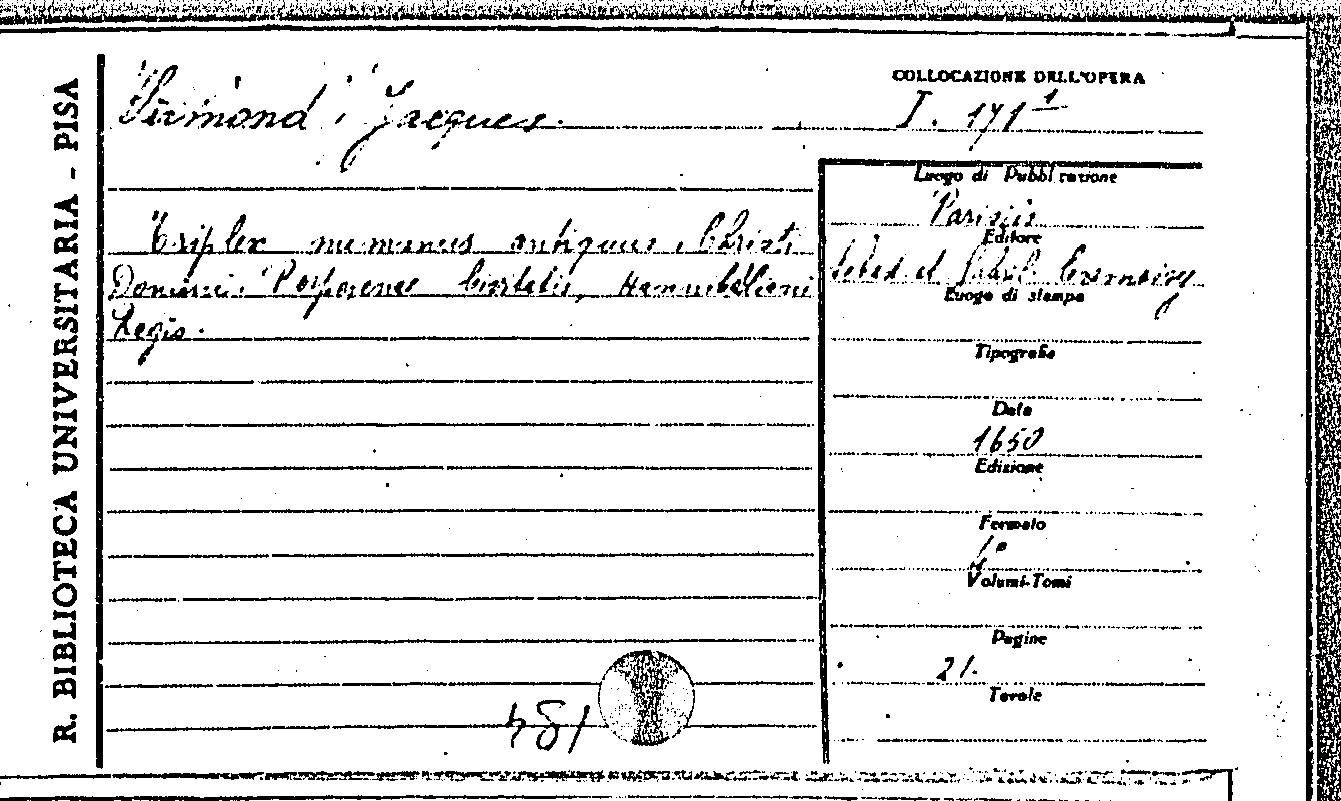 R. BIBLIOTECA UNIVERSITARIA - PISA
Sirmond, Jacques.
COLLOCAZIONE DELL'OPERA
I. 171 1
Triplex nummus antiquus, Christi
Domini, Perperenae Civitatis, Hannibaliani
Regis.
Luogo di Pubblicazione
Parisiis
Editore
Sebast. et Gabriel. Cramoisy
Luogo di stampa
Tipografia
Data
1650
Edizione
Formato
Volumi-Tomi
Pagine
21.
Tavole